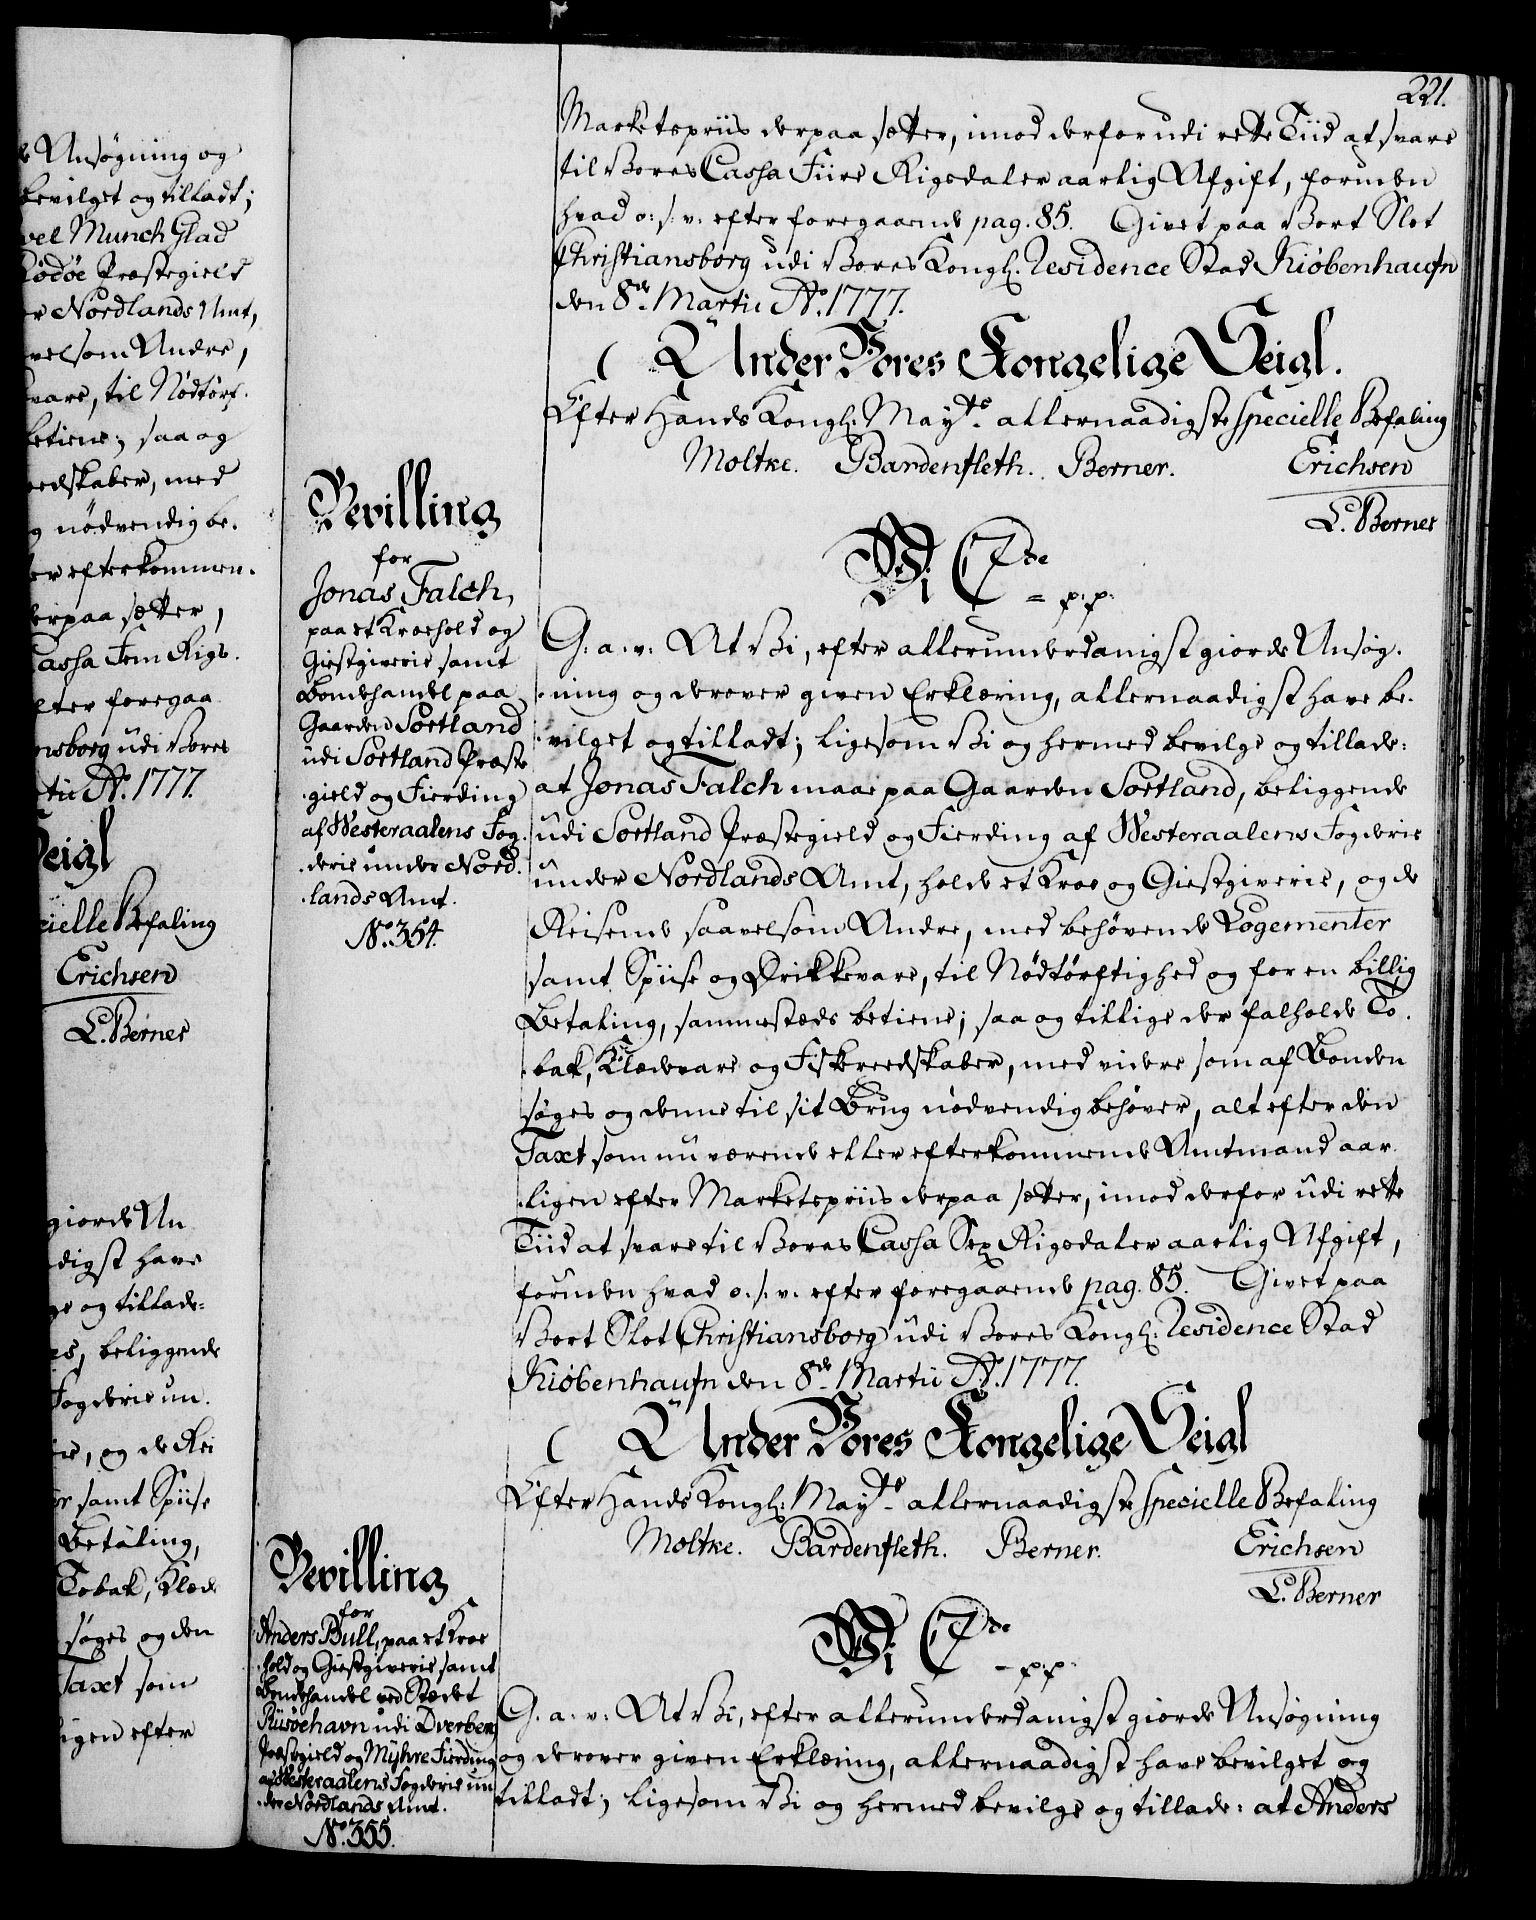 221.
Marketspriis derpaa sætter, imod derfor udi rette Tiid at svare
til Vores Cassa Fiire Rigsdaler aarlig Afgift, foruden
hvad o: s: v: efter foregaaende pag. 85. Givet paa Vort Slot
Christiansborg udi Vores Kongl: Residence Stad Kiöbenhaufn
den 8de Martii Ao. 1777.
Under Vores Kongelige Seigl.
Efter Hands Kongl: Mayts allernaadigste specielle Befaling
Moltke. Bardenfleth. Berner. Erichsen
L. Berner
Bevilling
for
Jonas Falch,
paa et Kroehold og
Giestgiverie samt
Bondehandel paa
Gaarden Sortland
udi Sortland Præste
gield og Fierding
af Westeraalens Fog
derie under Nord
lands Amt.
No. 354.
Wi C 7de = p:p:
G: a: v: At Vi, efter allerunderdanigst giorde Ansøg
ning og derover given Erklæring, allernaadigst have be
vilget og tilladt; ligesom Vi og hermed bevilge og tillade:
at Jonas Falch maae paa Gaarden Sortland, beliggende
udi Sortland Præstegield og Fierding af Westeraalens Fogderie
under Nordlands Amt, holde et Kroe og Giestgiverie, og de
Reisende saavelsom Andre, med behøvende Logementer
samt Spiise og Drikkevare, til Nödtörftighed og for en billig
Betaling, sammesteds betiene; saa og tillige der falholde To
bak, Klædevare og Fiskereedskaber, med videre som af Bonden
søges og denne til sit Brug nödvendig behøver, alt efter den
Taxt som nu værende eller efterkommende Amtmand aar
ligen efter Marketspriis derpaa sætter, imod derfor udi rette
Tiid at svare til Vores Cassa Sex Rigsdaler aarlig Afgift,
foruden hvad o: s: v: efter foregaaende pag. 85. Givet paa
Vort Slot Christiansborg udi Vores Kongl: Residence Stad
Kiöbenhaufn den 8de Martii Ao. 1777.
Under Vores Kongelige Seigl
Efter Hands Kongl: Mayts allernaadigste specielle Befaling
Moltke. Bardenfleth. Berner. Erichsen
L. Berner
Bevilling
for
Anders Bull, paa et Kroe
hold og Giestgiverie samt
Bondehandel ved Stædet
Riisöehavn udi Dverberg
Præstegield og Myhre Fierding
af Westeraalens Fogderie un
der Nordlands Amt.
No. 355.
Wi C 7de = p:p:
G. a: v: At Vi, efter allerunderdanigst giorde Ansøgning
og derover given Erklæring, allernaadigst have bevilget og
tilladt; ligesom Vi og hermed bevilge og tillade: at Anders
Ansøgning og
bevilget og tilladt;
Munch Glad
Rödöe Præstegield
Nordlands Amt,
velsom Andre,
vare, til Nödtörf
betiene; saa og
reedskaber, med
nödvendig be
efterkommen
derpaa sætter,
Cassa Fem Rigs
efter foregaa
nsborg udi Vores
tii Ao. 1777.
Seigl
cielle Befaling
Erichsen
L. Berner
giorde An
digst have
ge og tillade:
es, beliggende
Fogderie un
og de Rei
samt Spiise
Betaling,
Tobak, Klæde
søges og den
Taxt som
ligen efter